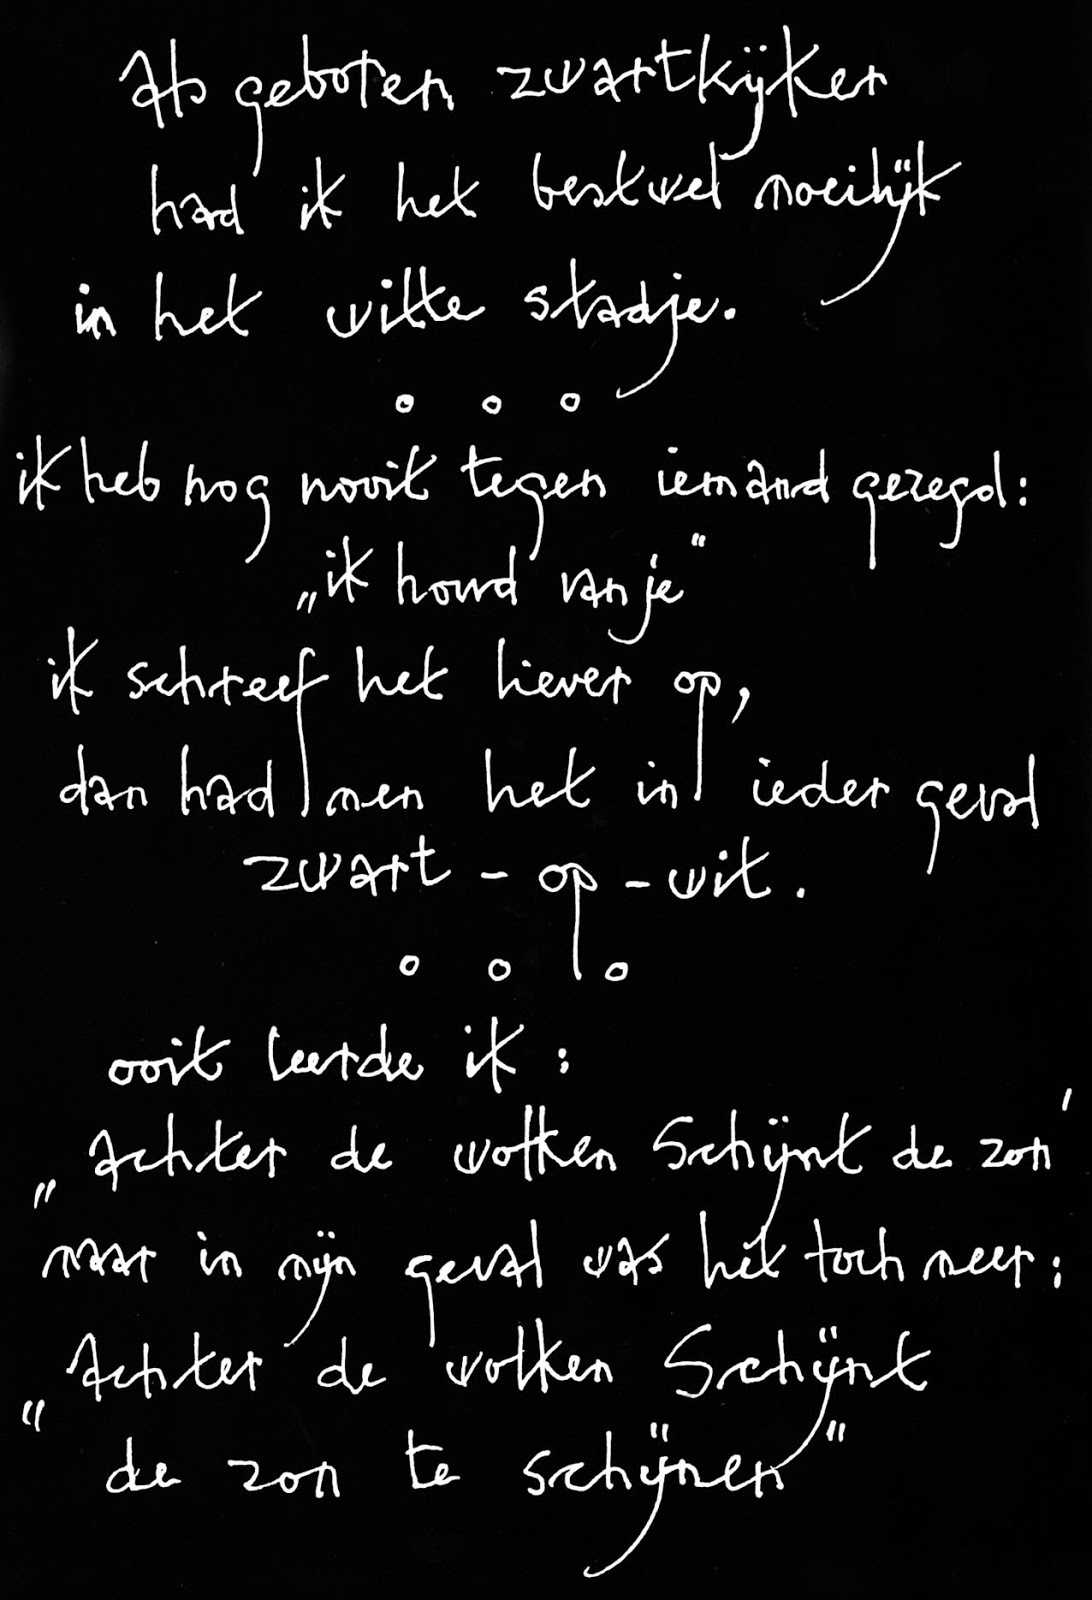 Als geboren zwartkijker
had ik het best wel moeilijk
in het witte stadje.
° ° °
ik heb nog nooit tegen iemand gezegd:
„ik houd van je”
ik schreef het liever op,
dan had men het in ieder geval
zwart - op - wit.
° ° °
ooit leerde ik:
„Achter de wolken Schijnt de zon'
maar in mijn geval was het toch meer:
„Achter de wolken Schijnt
de zon te schijnen”